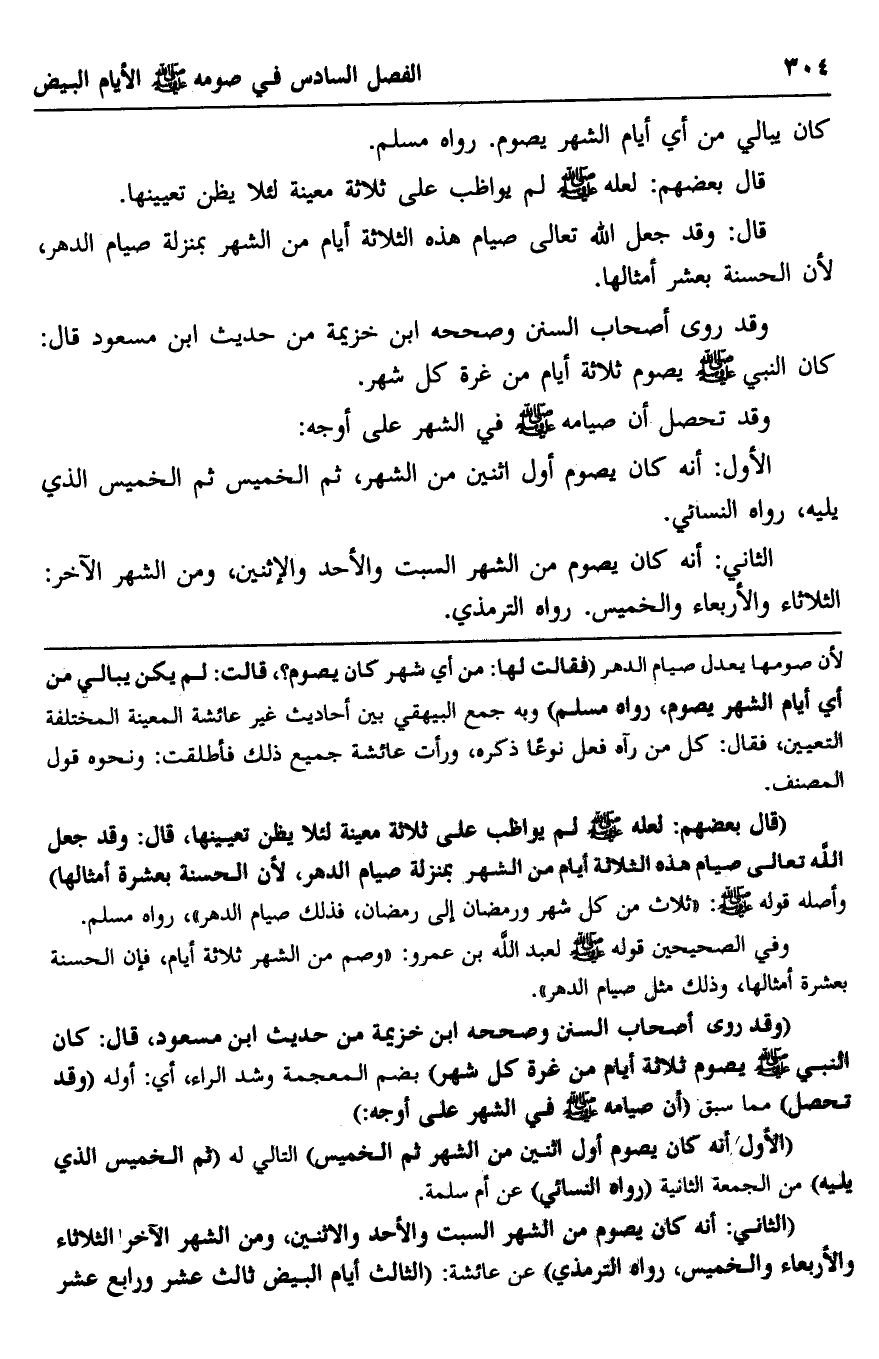 ٣٠٤ الفصل السادس في صومه ﷺ الأيام البيض
كان يبالي من أي أيام الشهر يصوم. رواه مسلم.
قال بعضهم: لعله ﷺ لم يواظب على ثلاثة معينة لئلا يظن تعيينها.
قال: وقد جعل الله تعالى صيام هذه الثلاثة أيام من الشهر بمنزلة صيام الدهر،
لأن الحسنة بعشر أمثالها.
وقد روى أصحاب السنن وصححه ابن خزيمة من حديث ابن مسعود قال:
كان النبي ﷺ يصوم ثلاثة أيام من غرة كل شهر.
وقد تحصل أن صيامه ﷺ في الشهر على أوجه:
الأول: أنه كان يصوم أول اثنين من الشهر، ثم الخميس ثم الخميس الذي
يليه، رواه النسائي.
الثاني: أنه كان يصوم من الشهر السبت والأحد والإثنين، ومن الشهر الآخر:
الثلاثاء والأربعاء والخميس. رواه الترمذي.
لأن صومها يعدل صيام الدهر (فقالت لها: من أي شهر كان يصوم؟، قالت: لم يكن يبالي من
أي أيام الشهر يصوم، رواه مسلم) وبه جمع البيهقي بين أحاديث غير عائشة المعينة المختلفة
التعيين، فقال: كل من رآه فعل نوعًا ذكره، ورأت عائشة جميع ذلك فأطلقت: ونحوه قول
المصنف.
(قال بعضهم: لعله ﷺ لم يواظب على ثلاثة معينة لئلا يظن تعيينها، قال: وقد جعل
اللَّه تعالى صيام هذه الثلاثة أيام من الشهر بمنزلة صيام الدهر، لأن الحسنة بعشرة أمثالها)
وأصله قوله ﷺ: «ثلاث من كل شهر ورمضان إلى رمضان، فذلك صيام الدهر»، رواه مسلم.
وفي الصحيحين قوله ﷺ لعبد اللَّه بن عمرو: «وصم من الشهر ثلاثة أيام، فإن الحسنة
بعشرة أمثالها، وذلك مثل صيام الدهر».
(وقد روى أصحاب السنن وصححه ابن خزيمة من حديث ابن مسعود، قال: كان
النبي ﷺ يصوم ثلاثة أيام من غرة كل شهر) بضم المعجمة وشد الراء، أي: أوله (وقد
تحصل) مما سبق (أن صيامه ﷺ في الشهر على أوجه:)
(الأول أنه كان يصوم أول اثنين من الشهر ثم الخميس) التالي له (ثم الخميس الذي
يليه) من الجمعة الثانية (رواه النسائي) عن أم سلمة.
(الثاني: أنه كان يصوم من الشهر السبت والأحد والاثنين، ومن الشهر الآخر الثلاثاء
والأربعاء والخميس، رواه الترمذي) عن عائشة: (الثالث أيام البيض ثالث عشر ورابع عشر